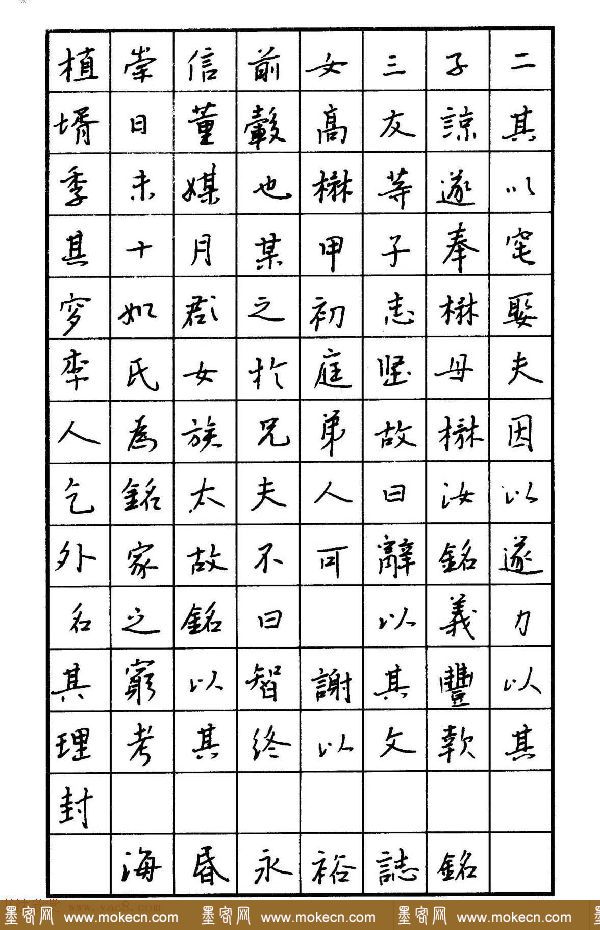 植崇信前女三子二
壻日董轂高友諒其
季未媒也楙等遂以
其十月某甲子奉窆
穸如郡之初志楙娶
李氏女於庭堅母夫
人為族兄弟故楙因
乞銘太夫人曰汝以
外家故不可辭銘遂
名之銘曰 以義力
其窮以智謝其豐以
理考其終以文款其
封
海昏永裕誌銘
墨客网 www.mokecn.com 墨客网 www.mokecn.com 墨客网 www.mokecn.com